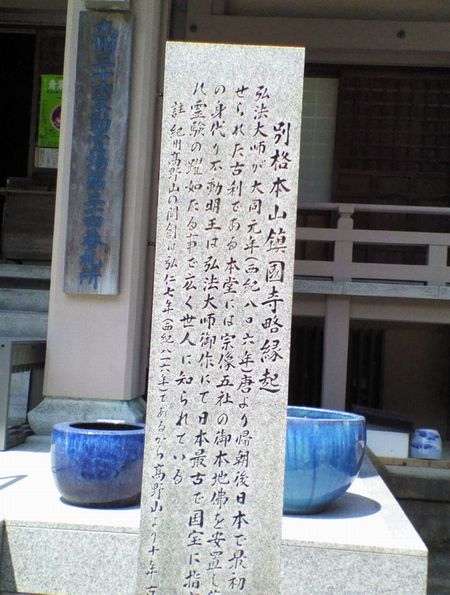 別格本山鎮國寺略縁起
弘法大師が大同元年(西紀八〇六年)唐より帰朝後日本で最初
せられた古刹である本堂には宗像五社の御本地佛を安置し
の身代り不動明王は弘法大師御作にて日本最古で国宝に指
れ霊験の躍如たる事で広く世人に知られている
註 紀州高野山の開創は弘仁七年(西紀八一六年)であるから高野山より十年古
九州三十六不動霊場第三十四番札所